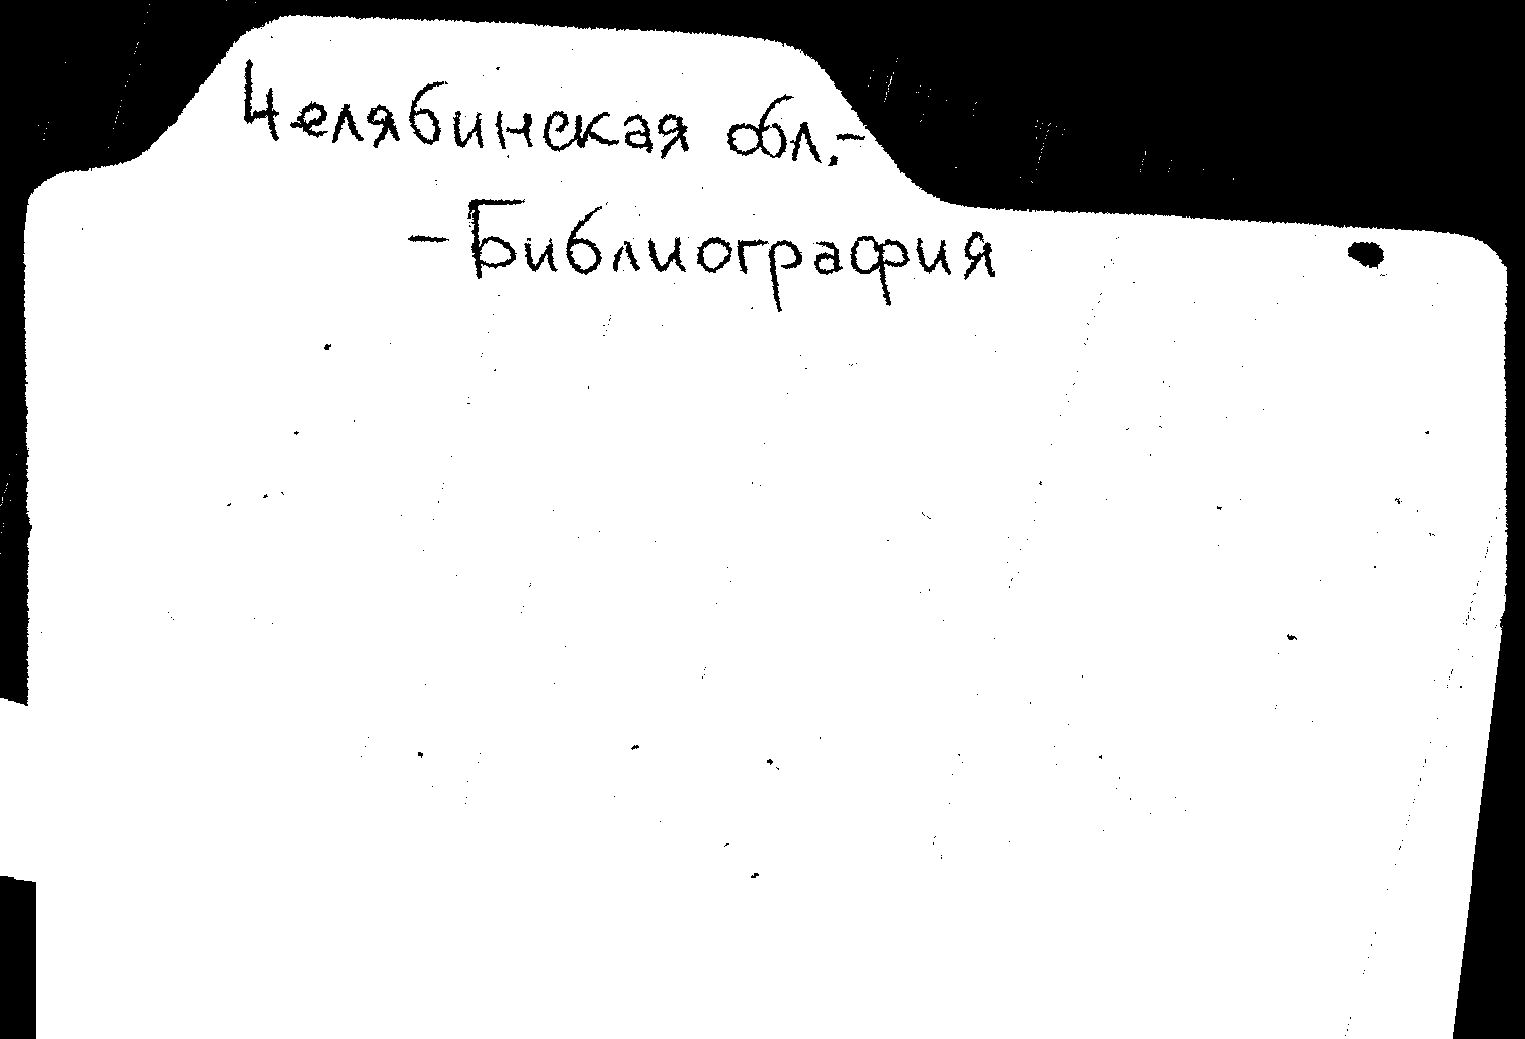 Челябинская обл.-
-Библиография